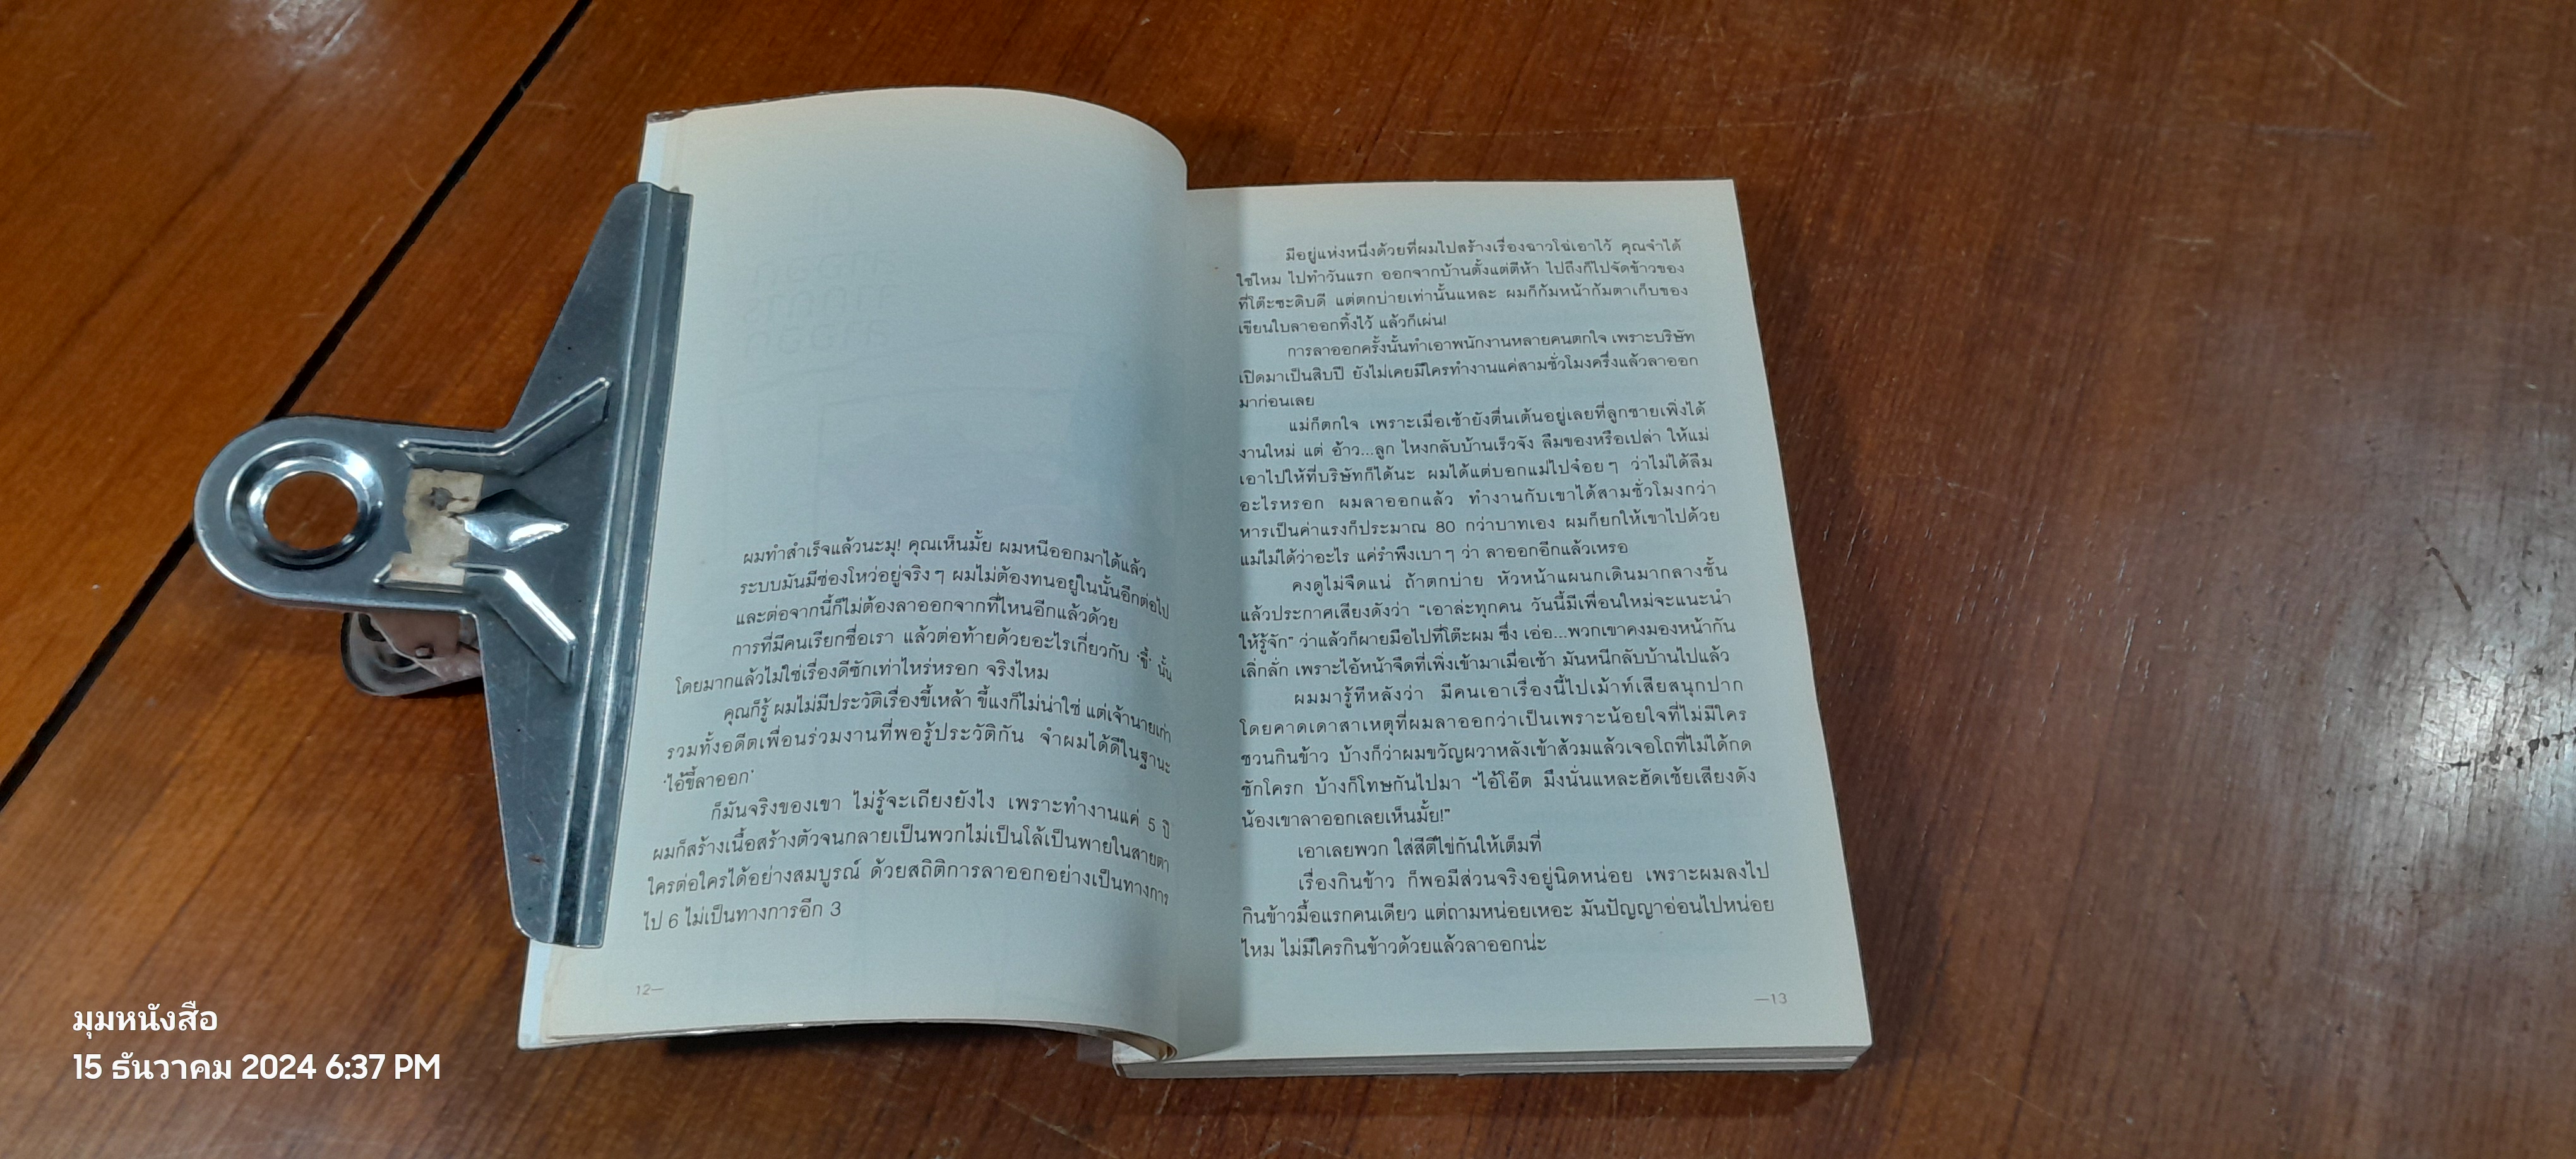 ผมทำสำเร็จแล้วนะมุ! คุณเห็นมั้ย ผมหนีออกมาได้แล้ว
ระบบมันมีช่องโหว่อยู่จริงๆ ผมไม่ต้องทนอยู่ในนั้นอีกต่อไป
และต่อจากนี้ก็ไม่ต้องลาออกจากที่ไหนอีกแล้วด้วย
การที่มีคนเรียกชื่อเรา แล้วต่อท้ายด้วยอะไรเกี่ยวกับ 'ขี้' นั้น
โดยมากแล้วไม่ใช่เรื่องดีซักเท่าไหร่หรอก จริงไหม
คุณก็รู้ ผมไม่มีประวัติเรื่องขี้เหล้า ขี้แงก็ไม่น่าใช่ แต่เจ้านายเก่า
รวมทั้งอดีตเพื่อนร่วมงานที่พอรู้ประวัติกัน จำผมได้ดีในฐานะ
'ไอ้ขี้ลาออก'
ก็มันจริงของเขา ไม่รู้จะเถียงยังไง เพราะทำงานแค่ 5 ปี
ผมก็สร้างเนื้อสร้างตัวจนกลายเป็นพวกไม่เป็นโล้เป็นพายในสายตา
ใครต่อใครได้อย่างสมบูรณ์ ด้วยสถิติการลาออกอย่างเป็นทางการ
ไป 6 ไม่เป็นทางการอีก 3
12—
มีอยู่แห่งหนึ่งด้วยที่ผมไปสร้างเรื่องฉาวโฉ่เอาไว้ คุณจำได้
ใช่ไหม ไปทำวันแรก ออกจากบ้านตั้งแต่ตีห้า ไปถึงก็ไปจัดข้าวของ
ที่โต๊ะซะดิบดี แต่ตกบ่ายเท่านั้นแหละ ผมก็ก้มหน้าก้มตาเก็บของ
เขียนใบลาออกทิ้งไว้ แล้วก็เผ่น!
การลาออกครั้งนั้นทำเอาพนักงานหลายคนตกใจ เพราะบริษัท
เปิดมาเป็นสิบปี ยังไม่เคยมีใครทำงานแค่สามชั่วโมงครึ่งแล้วลาออก
มาก่อนเลย
แม่ก็ตกใจ เพราะเมื่อเช้ายังตื่นเต้นอยู่เลยที่ลูกชายเพิ่งได้
งานใหม่ แต่ อ้าว...ลูก ไหงกลับบ้านเร็วจัง ลืมของหรือเปล่า ให้แม่
เอาไปให้ที่บริษัทก็ได้นะ ผมได้แต่บอกแม่ไปจ๋อยๆ ว่าไม่ได้ลืม
อะไรหรอก ผมลาออกแล้ว ทำงานกับเขาได้สามชั่วโมงกว่า
หารเป็นค่าแรงก็ประมาณ 80 กว่าบาทเอง ผมก็ยกให้เขาไปด้วย
แม่ไม่ได้ว่าอะไร แค่รำพึงเบาๆ ว่า ลาออกอีกแล้วเหรอ
คงดูไม่จืดแน่ ถ้าตกบ่าย หัวหน้าแผนกเดินมากลางชั้น
แล้วประกาศเสียงดังว่า "เอาล่ะทุกคน วันนี้มีเพื่อนใหม่จะแนะนำ
ให้รู้จัก" ว่าแล้วก็ผายมือไปที่โต๊ะผม ซึ่ง เอ่อ...พวกเขาคงมองหน้ากัน
เลิ่กลั่ก เพราะไอ้หน้าจืดที่เพิ่งเข้ามาเมื่อเช้า มันหนีกลับบ้านไปแล้ว
ผมมารู้ทีหลังว่า มีคนเอาเรื่องนี้ไปเม้าท์เสียสนุกปาก
โดยคาดเดาสาเหตุที่ผมลาออกว่าเป็นเพราะน้อยใจที่ไม่มีใคร
ชวนกินข้าว บ้างก็ว่าผมขวัญผวาหลังเข้าส้วมแล้วเจอโถที่ไม่ได้กด
ชักโครก บ้างก็โทษกันไปมา "ไอ้โอ๊ต มึงนั่นแหละฮัดเช้ยเสียงดัง
น้องเขาลาออกเลยเห็นมั้ย!"
เอาเลยพวก ใส่สีตีไข่กันให้เต็มที่
เรื่องกินข้าว ก็พอมีส่วนจริงอยู่นิดหน่อย เพราะผมลงไป
กินข้าวมื้อแรกคนเดียว แต่ถามหน่อยเหอะ มันปัญญาอ่อนไปหน่อย
ไหม ไม่มีใครกินข้าวด้วยแล้วลาออกน่ะ
—13
มุมหนังสือ
15 ธันวาคม 2024 6:37 PM